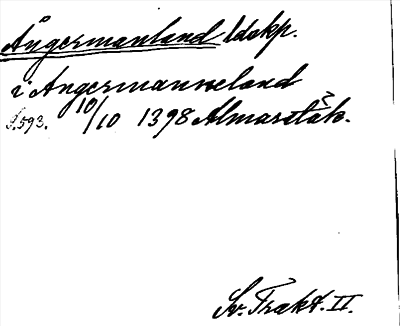 Ångermanland ldskp.
i Angermanneland
S. 593. 10/10 1398 Almarstäk.
Sv. Trakt. II.